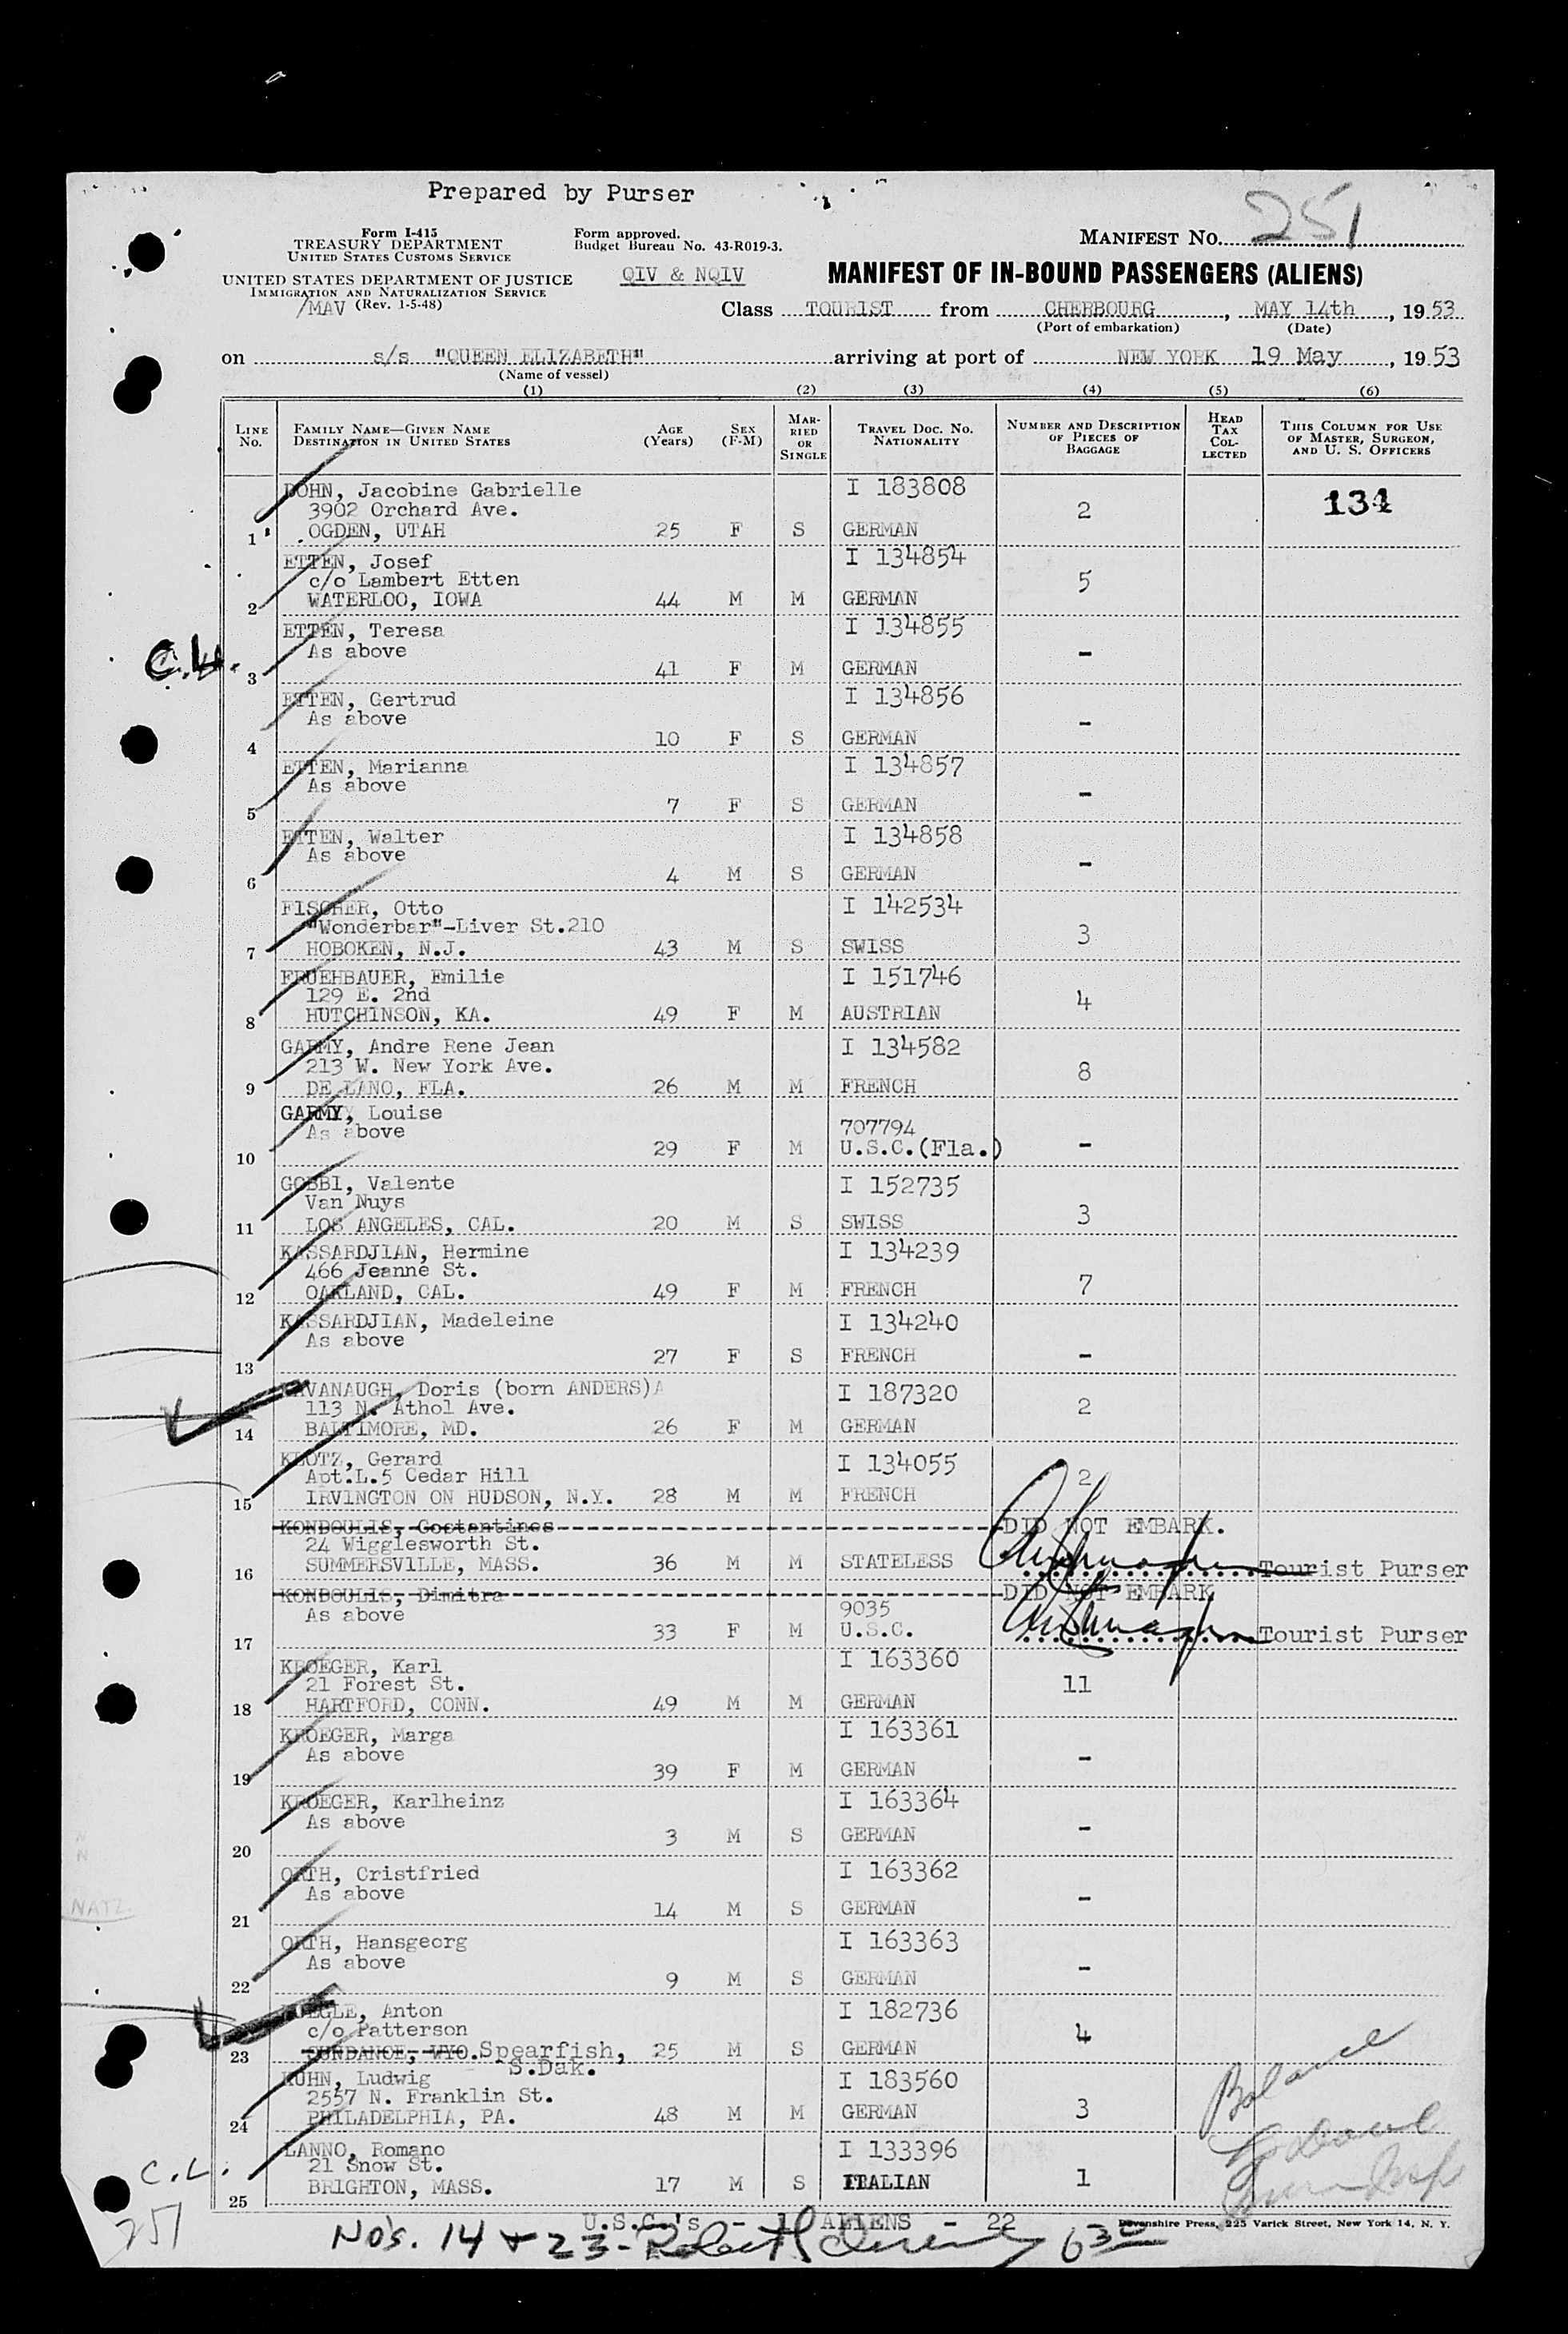 Prepared by Purser
251
Form I-415
TREASURY DEPARTMENT
UNITED STATES CUSTOMS SERVICE
UNITED STATES DEPARTMENT OF JUSTICE
IMMIGRATION AND NATURALIZATION SERVICE
/MAV (Rev. 1-5-48)
Form approved.
Budget Bureau No. 43-R019-3.
QIV & NQIV
MANIFEST NO.
MANIFEST OF IN-BOUND PASSENGERS (ALIENS)
Class TOURIST from CHERBOURG, MAY 14th, 1953
(Port of embarkation) (Date)
on s/s "QUEEN ELIZABETH" arriving at port of NEW YORK 19 May, 1953
(Name of vessel)
(1) (2) (3) (4) (5) (6)
LINE No. FAMILY NAME—GIVEN NAME DESTINATION IN UNITED STATES AGE (Years) SEX (F-M) MARRIED OR SINGLE TRAVEL DOC. NO. NATIONALITY NUMBER AND DESCRIPTION OF PIECES OF BAGGAGE HEAD TAX COLLECTED THIS COLUMN FOR USE OF MASTER, SURGEON, AND U. S. OFFICERS
DOHN, Jacobine Gabrielle I 183808
3902 Orchard Ave. 2 134
1 OGDEN, UTAH 25 F S GERMAN
ETTEN, Josef I 134854
c/o Lambert Etten 5
2 WATERLOO, IOWA 44 M M GERMAN
ETTEN, Teresa I 134855
As above -
C.H. 3 41 F M GERMAN
ETTEN, Gertrud I 134856
As above -
4 10 F S GERMAN
ETTEN, Marianna I 134857
As above -
5 7 F S GERMAN
ETTEN, Walter I 134858
As above -
6 4 M S GERMAN
FISCHER, Otto I 142534
"Wonderbar"-Liver St.210 3
7 HOBOKEN, N.J. 43 M S SWISS
FRUEHBAUER, Emilie I 151746
129 E. 2nd 4
8 HUTCHINSON, KA. 49 F M AUSTRIAN
GARMY, Andre Rene Jean I 134582
213 W. New York Ave. 8
9 DE LANO, FLA. 26 M M FRENCH
GARMY, Louise
As above 707794
10 29 F M U.S.C.(Fla.) -
GOBBI, Valente I 152735
Van Nuys 3
11 LOS ANGELES, CAL. 20 M S SWISS
KASSARDJIAN, Hermine I 134239
466 Jeanne St. 7
12 OAKLAND, CAL. 49 F M FRENCH
KASSARDJIAN, Madeleine I 134240
As above
13 27 F S FRENCH -
KAVANAUGH, Doris (born ANDERS)A I 187320
113 N. Athol Ave. 2
14 BALTIMORE, MD. 26 F M GERMAN
KLOTZ, Gerard I 134055
Apt.L.5 Cedar Hill 2
15 IRVINGTON ON HUDSON, N.Y. 28 M M FRENCH
KONDOULIS, Costantinos DID NOT EMBARK.
24 Wigglesworth St.
16 SUMMERSVILLE, MASS. 36 M M STATELESS Tourist Purser
KONDOULIS, Dimitra DID NOT EMBARK
As above 9035
17 33 F M U.S.C. Tourist Purser
KROEGER, Karl I 163360
21 Forest St. 11
18 HARTFORD, CONN. 49 M M GERMAN
KROEGER, Marga I 163361
As above -
19 39 F M GERMAN
KROEGER, Karlheinz I 163364
As above -
20 3 M S GERMAN
ORTH, Cristfried I 163362
As above -
21 14 M S GERMAN
NATZ.
ORTH, Hansgeorg I 163363
As above -
22 9 M S GERMAN
KUEGLE, Anton I 182736
c/o Patterson 4
23 SUNDANCE, WYO. Spearfish, 25 M S GERMAN
S.Dak.
KUHN, Ludwig I 183560
2557 N. Franklin St. 3
24 PHILADELPHIA, PA. 48 M M GERMAN
Balance
LANNO, Romano I 133396
C.L. 21 Snow St. 1
25 BRIGHTON, MASS. 17 M S ITALIAN
251
U.S.C.'s - 1 ALIENS - 22
Devonshire Press, 225 Varick Street, New York 14, N. Y.
No's. 14 & 23 - Robert 630